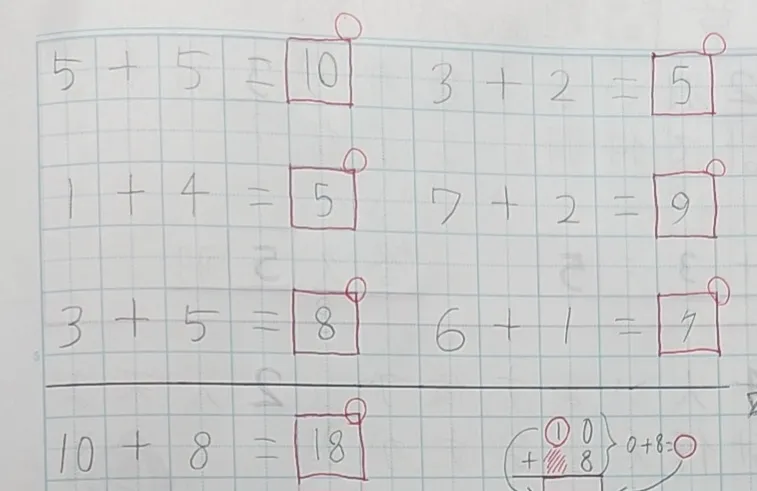 5 + 5 = 10 3 + 2 = 5
1 + 4 = 5 7 + 2 = 9
3 + 5 = 8 6 + 1 = 7
10 + 8 = 18
1 0
+ 8
0+8=